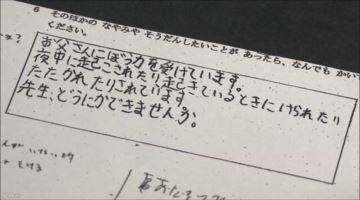 6 そのほかの なやみや そうだんしたいことが あったら、なんでも かい
ください。
お父さんにぼう力を受けています。
夜中に起こされたり起きているときにけられたり
たたかれたりされています。
先生、どうにかできませんか。